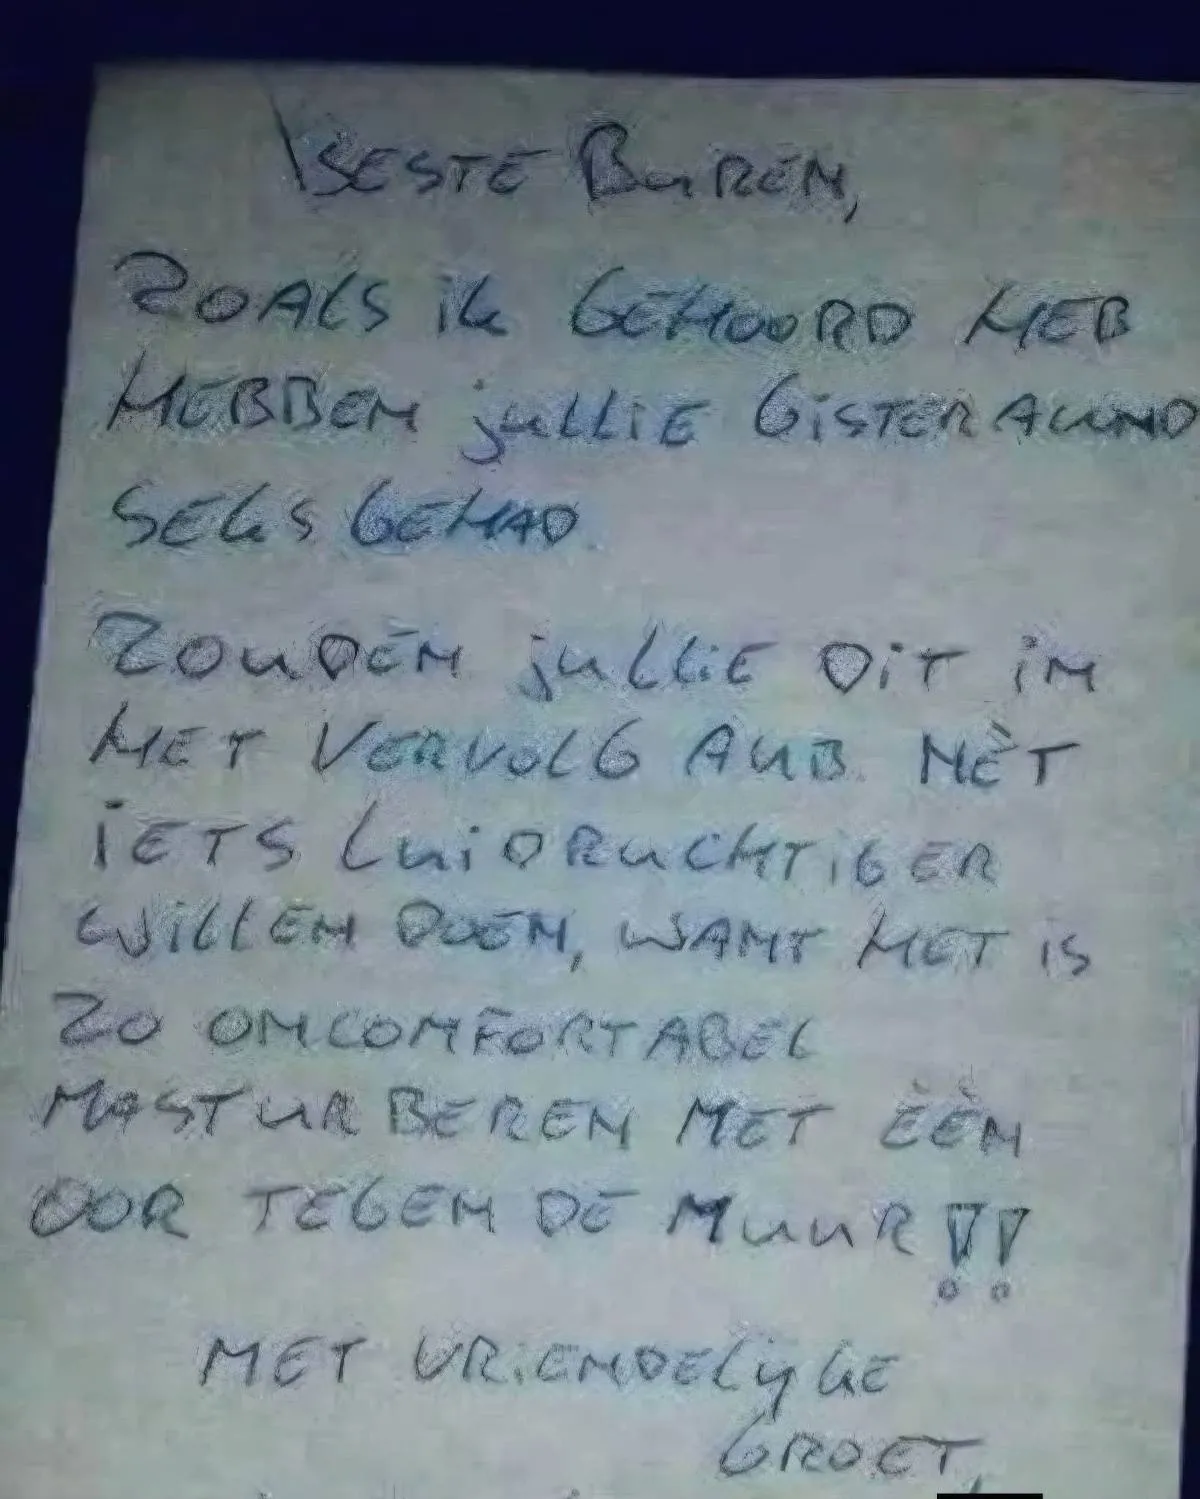 BESTE BUREN,
ZOALS ik GEHOORD HEB
HEBBEN jullie GISTERAVOND
SEKS GEHAD.
ZOUDEN jullie DIT IN
HET VERVOLG AUB NÈT
IETS LUIDRUCHTIGER
WILLEN DOEN, WANT HET IS
ZO ONCOMFORTABEL
MASTURBEREN MET ÈÈN
OOR TEGEN DE MUUR!!
MET VRIENDELIJKE
GROET,